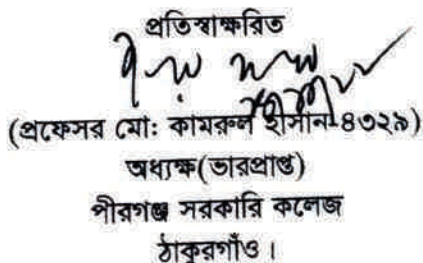 প্রতিস্বাক্ষরিত
(প্রফেসর মো: কামরুল হাসান-৪৩২৯)
অধ্যক্ষ(ভারপ্রাপ্ত)
পীরগঞ্জ সরকারি কলেজ
ঠাকুরগাঁও।